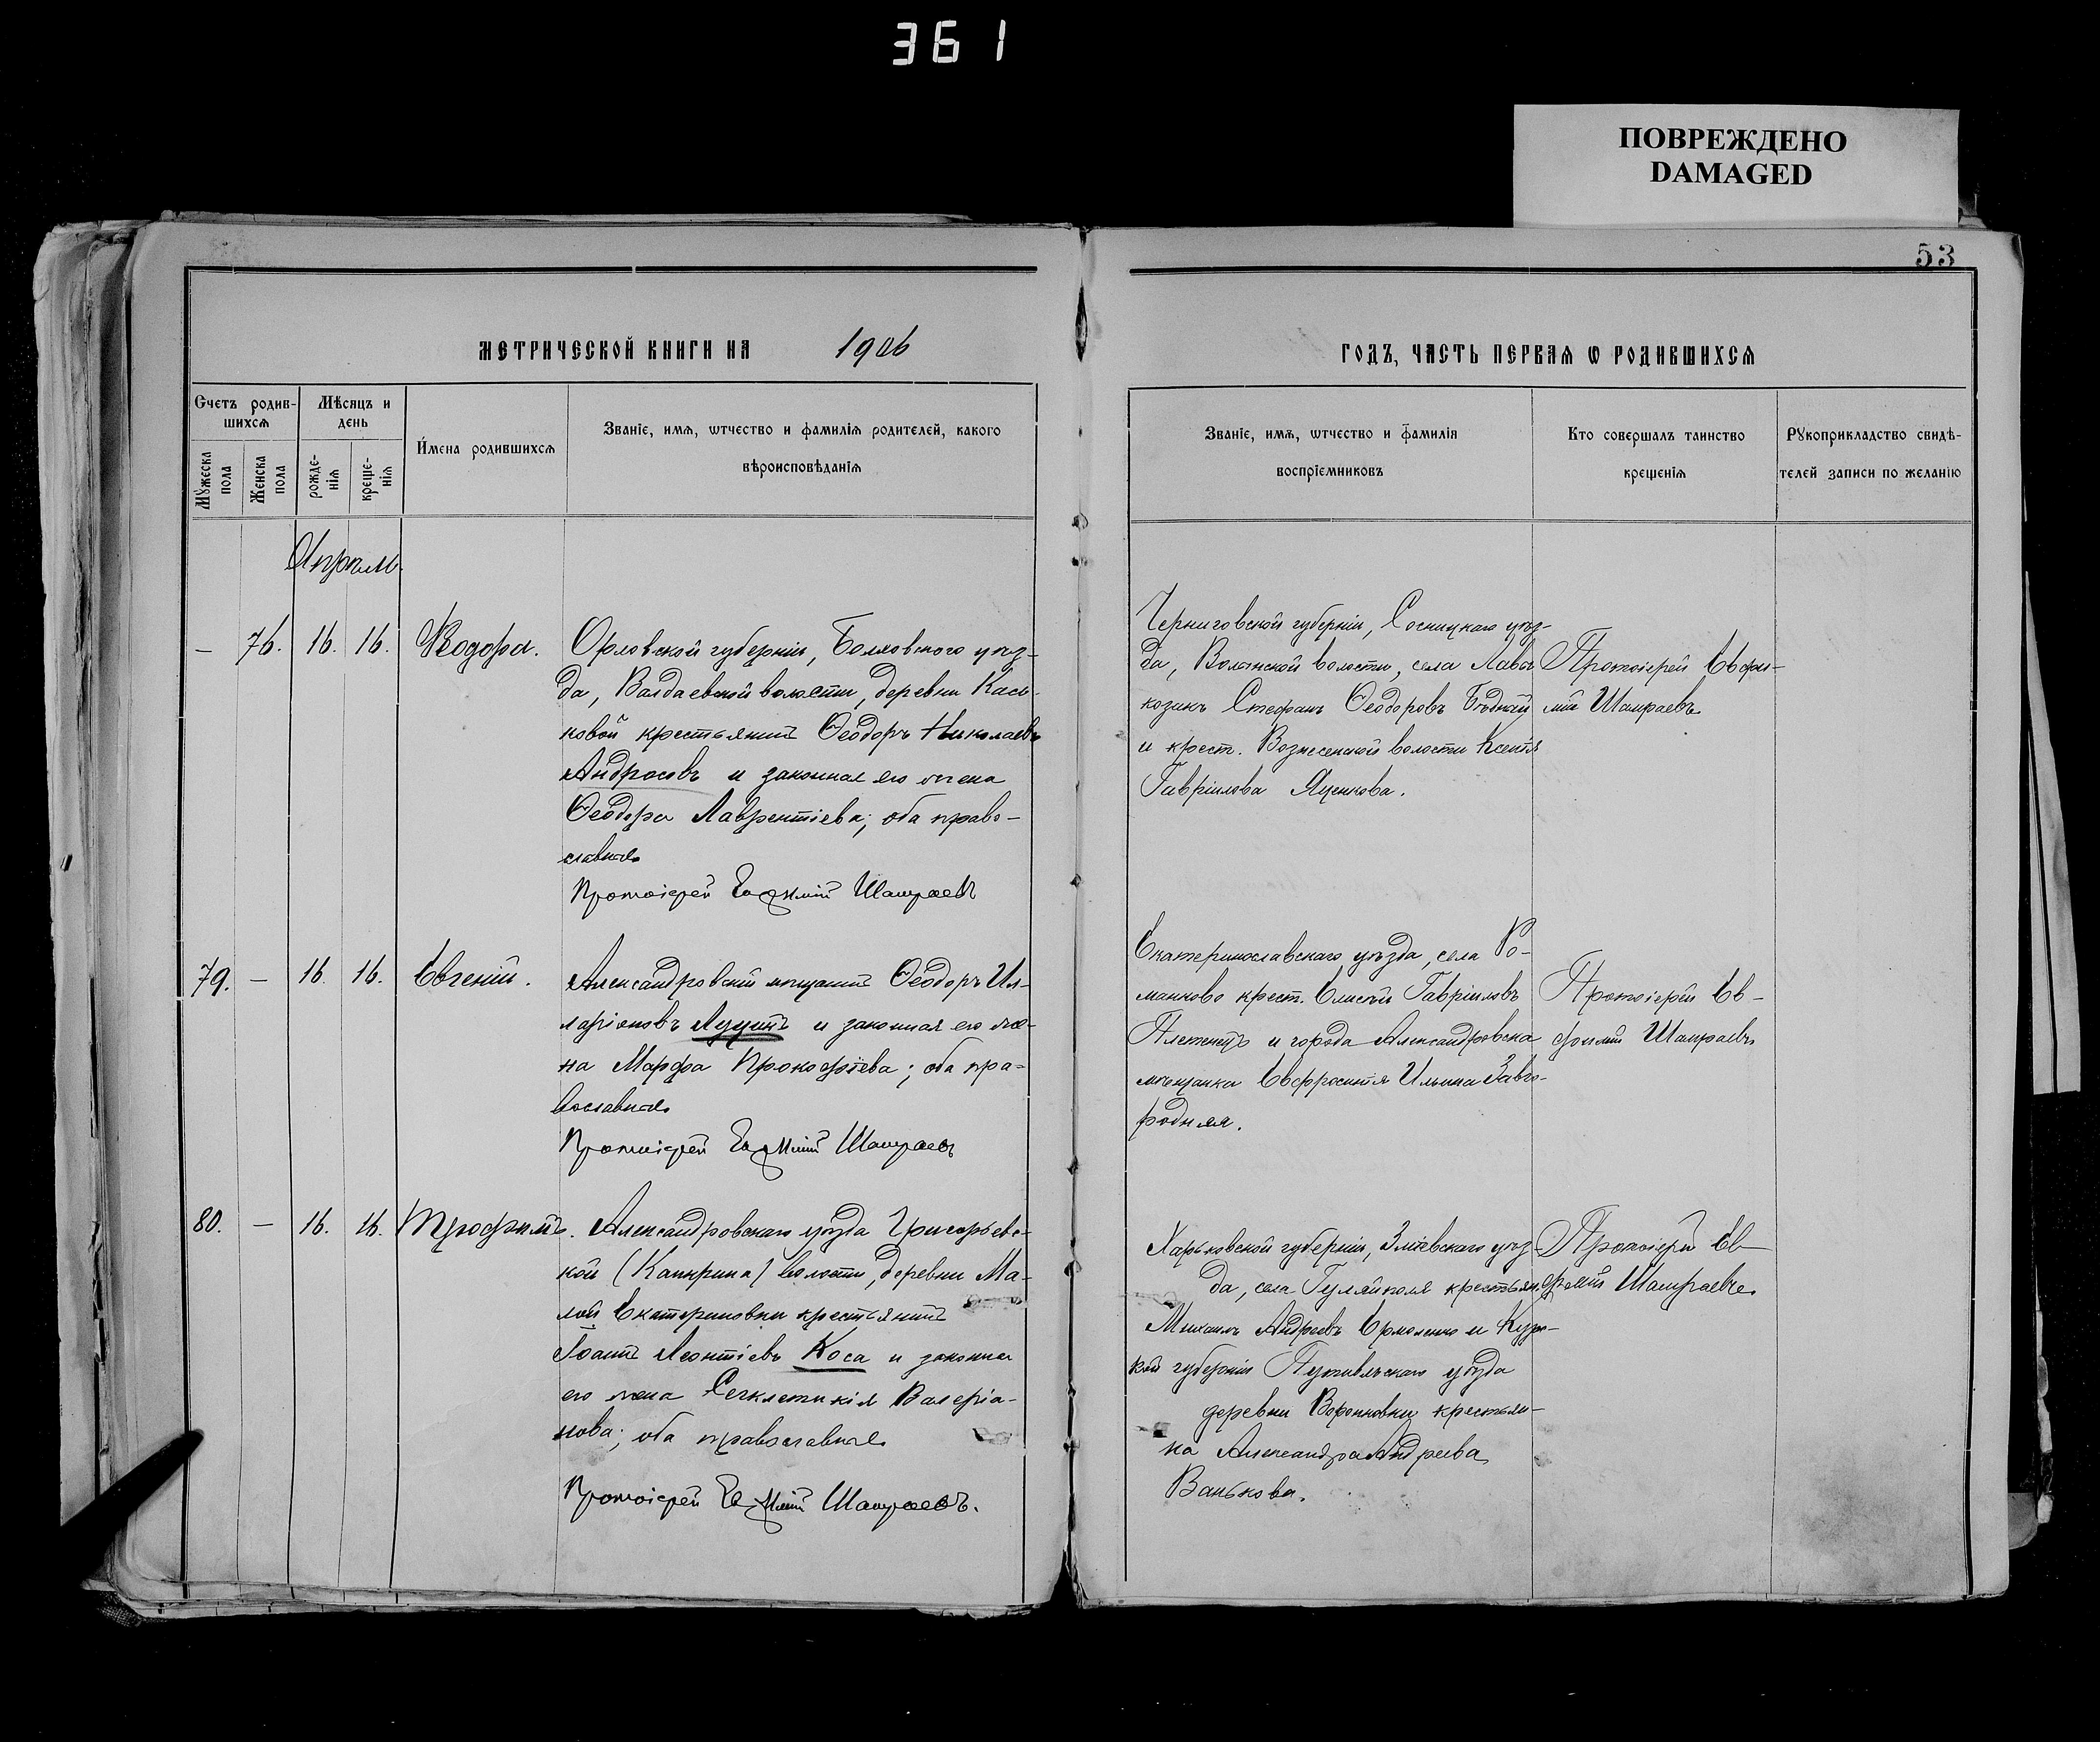 361
ПОВРЕЖДЕНО
DAMAGED
53
МЕТРИЧЕСКОЙ КНИГИ НА 1906
ГОДЪ, ЧАСТЬ ПЕРВАЯ Ѡ РОДИВШИХСѦ
Счетъ родив-
шихсѧ
Мѣсяцъ и
день
Мꙋжеска
пола
Женска
пола
рожде-
нїѧ
креще-
нїѧ
Имена родившихсѧ
Званїе, имѧ, ѡтчество и фамилїѧ родителей, какого
вѣроисповѣданїѧ
Званїе, имѧ, ѡтчество и фамилїѧ
воспрїемниковъ
Кто совершалъ таинство
крещенїѧ
Рꙋкоприкладство свидѣ-
телей записи по желанїю
Апрѣль
— 76. 16. 16. Ѳеодора.
Орловской губерніи, Болховского уѣз-
да, Валдаевской волости, деревни Кась-
ковой крестьянинъ Ѳеодоръ Николаевъ
Андросовъ и законная его жена
Ѳеодора Лаврентіева; оба право-
славные
Протоіерей Евфимій Шамраевъ
Черниговской губерніи, Сосницкаго уѣз-
да, Волынской волости, села Лавы
козакъ Стефанъ Ѳеодоровъ Бѣдный
и крест. Вознесенской волости Ксенія
Гавріилова Яценкова.
Протоіерей Евфи-
мій Шамраевъ
79. — 16. 16. Евгеній.
Александровскій мѣщанинъ Ѳеодоръ Ил-
ларіоновъ и законная его же-
на Марфа Прокофіева; оба пра-
вославные
Протоіерей Евфимій Шамраевъ
Екатеринославскаго уѣзда, села Ро-
манково крест. Елисей Гавріиловъ
Плетенецъ и города Александровска
мѣщанка Евфросинія Ильина Завго-
родняя.
Протоіерей Ев-
фимій Шамраевъ
80. — 16. 16. Трофимъ.
Александровскаго уѣзда Григорьевс-
кой (Канкрина) волости, деревни Ма-
лой Екатериновки крестьянинъ
Іоаннъ Леонтіевъ Коса и законная
его жена Сегклетикія Валеріа-
нова; оба православные
Протоіерей Евфимій Шамраевъ.
Харьковской губерніи, Зміевскаго уѣз-
да, села Гуляйполя крестьян.
Михаилъ Андреевъ Ермоленко и Курс-
кой губерніи Путивльскаго уѣзда
деревни Воронковки крестьян-
ка Александра Андреева
Ванькова.
Протоіерей Ев-
фимій Шамраевъ